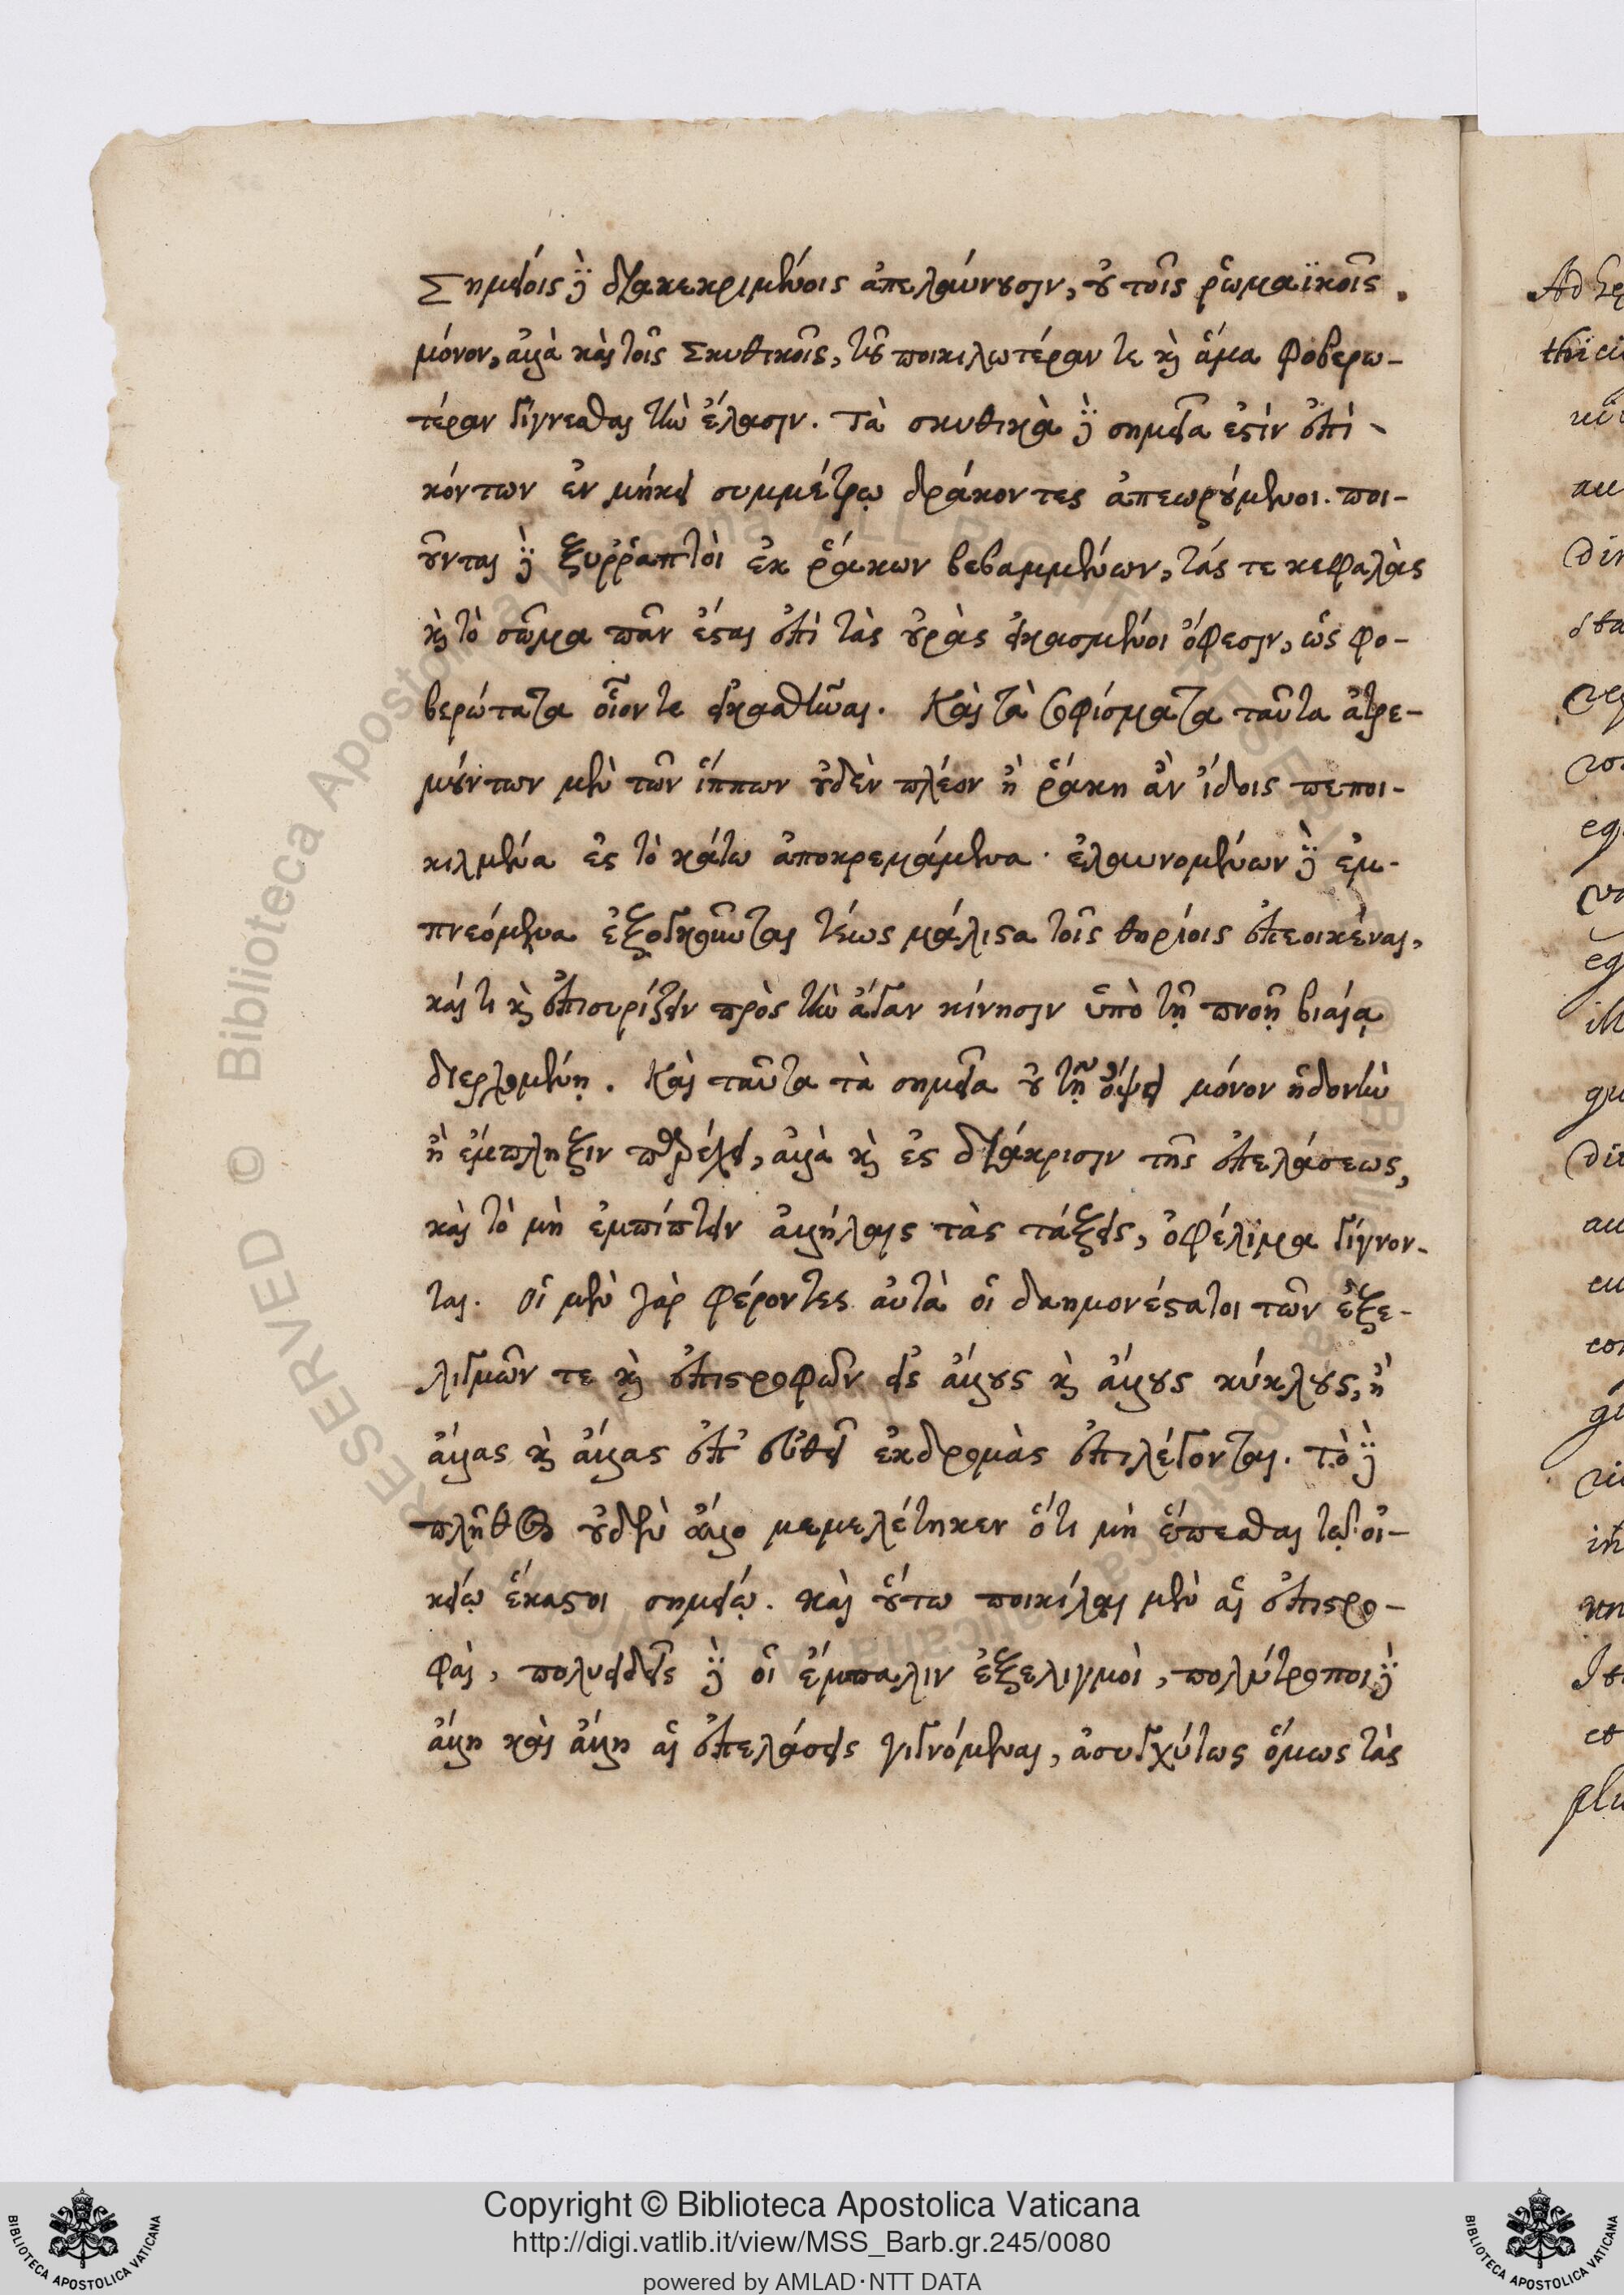 Σημείοις δὲ διακεκριμένοις ἀπελαύνουσιν, οὐ τοῖς ῥωμαϊκοῖς
μόνον, ἀλλὰ καὶ τοῖς Σκυθικοῖς, τοῦ ποικιλωτέραν τε καὶ ἅμα φοβερω-
τέραν γίγνεσθαι τὴν ἔλασιν. Τὰ σκυθικὰ δὲ σημεῖα ἐστὶν ἐπὶ
κόντων ἐν μήκει συμμέτρῳ δράκοντες ἀπεωρούμενοι. ποι-
οῦνται δὲ ξυρῤαπτοὶ ἐκ ῥάκων βεβαμμένων, τάς τε κεφαλὰς
καὶ τὸ σῶμα πᾶν ἔσται ἐπὶ τὰς οὐρὰς εἰκασμένοι ὄφεσιν, ὡς φο-
βερώτατα οἷόν τε εἰκασθῆναι. Καὶ τὰ σοφίσματα ταῦτα ἀτρε-
μούντων μὲν τῶν ἵππων οὐδὲν πλέον ἢ ῥάκη ἂν ἴδοις πεποι-
κιλμένα ἐς τὸ κάτω ἀποκρεμάμενα· ἐλαυνομένων δὲ ἐμ-
πνεόμενα ἐξογκοῦται τέως μάλιστα τοῖς θηρίοις ἐπεοικέναι,
καί τι καὶ ἐπισυρίζειν πρὸς τὴν ἄγαν κίνησιν ὑπὸ τῇ πνοῇ βιαίᾳ
διερχομένῃ. Καὶ ταῦτα τὰ σημεῖα οὐ τῇ ὄψει μόνον ἡδονὴν
ἢ ἔμπληξιν παρέχει, ἀλλὰ καὶ ἐς διάκρισιν τῆς ἐπελάσεως,
καὶ τὸ μὴ ἐμπίπτειν ἀλλήλαις τὰς τάξεις, ὀφέλιμα γίγνον-
ται. Οἱ μὲν γὰρ φέροντες αὐτὰ οἱ δαημονέστατοι τῶν ἐξε-
λιγμῶν τε καὶ ἐπιστροφῶν εἰς ἄλλους καὶ ἄλλους κύκλους, ἢ
ἄλλας καὶ ἄλλας ἐπ' εὐθεῖ ἐκδρομὰς ἐπιλέγονται. Τὸ δὲ
πλῆθος οὐδὲν ἄλλο μεμελέτηκεν ὅτι μὴ ἕπεσθαι τῷ οἰ-
κείῳ ἕκαστοι σημείῳ. καὶ οὕτω ποικίλαι μὲν αἱ ἐπιστρο-
φαὶ, πολυειδεῖς δὲ οἱ ἔμπαλιν ἐξελιγμοὶ, πολύτροποι δὲ
ἄλλη καὶ ἄλλη αἱ ἐπελάσεις γιγνόμεναι, ἀσυγχύτως ὅμως τὰς
Copyright © Biblioteca Apostolica Vaticana
http://digi.vatlib.it/view/MSS_Barb.gr.245/0080
powered by AMLAD·NTT DATA